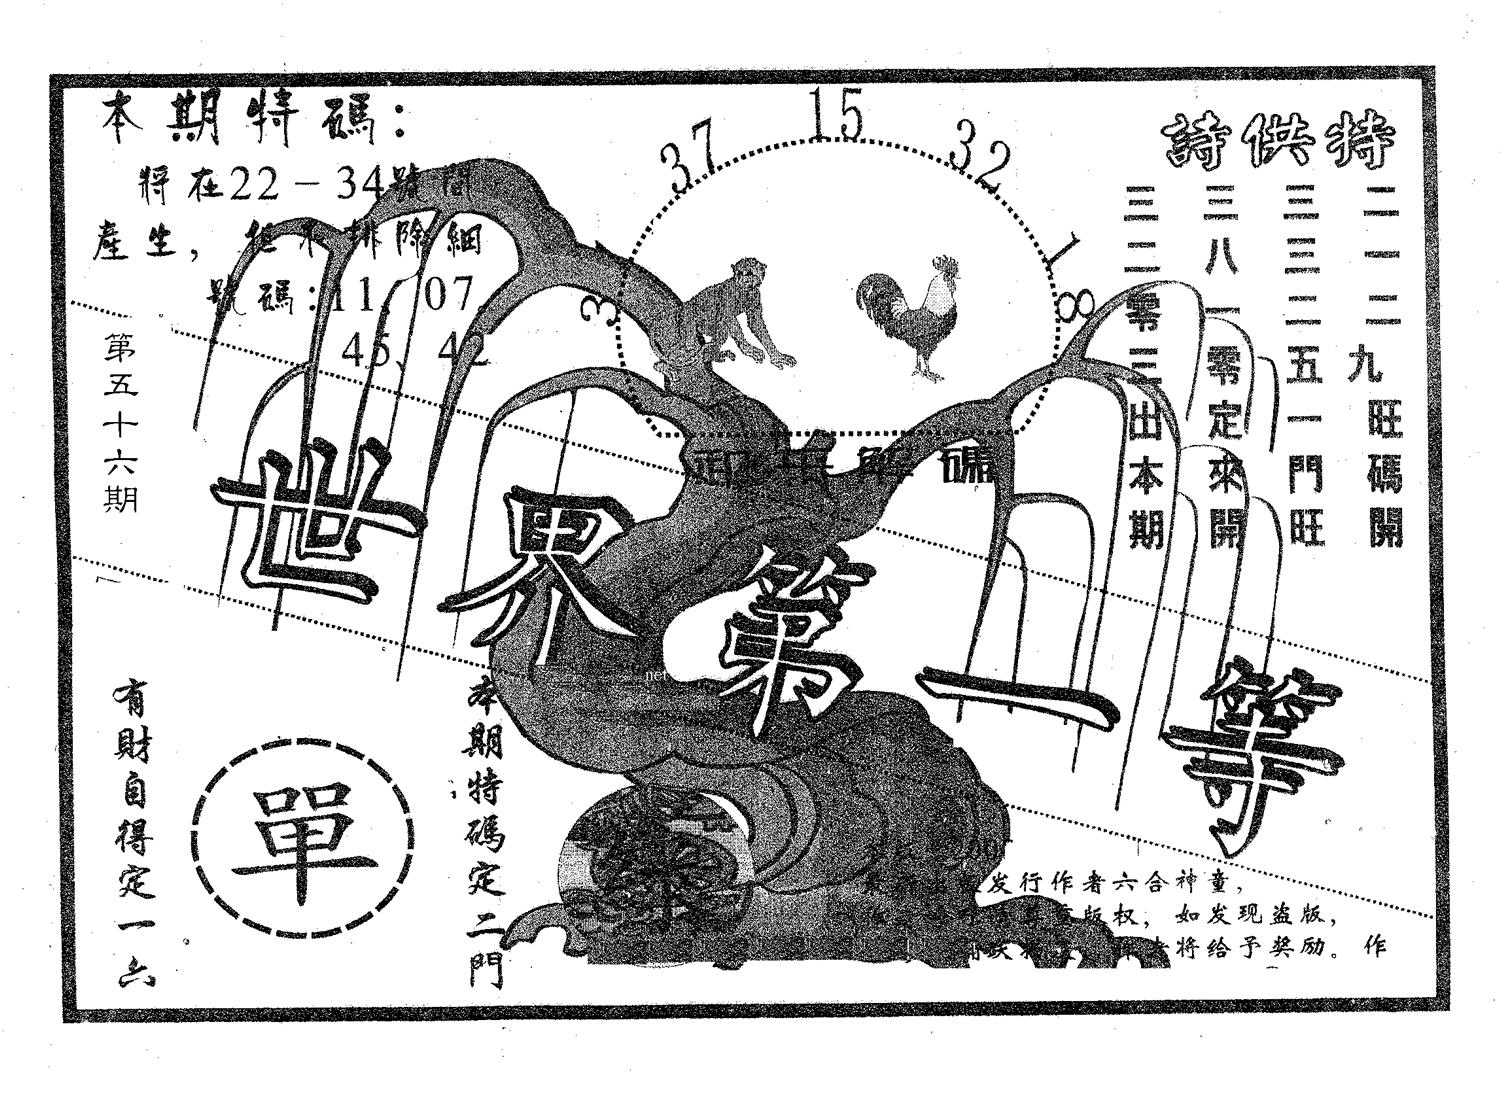 本期特碼：
將在22－34號間
產生，但不排除細
號碼：11、07、
45、42
第五十六期
37
15
32
18
特供詩
二一二九旺碼開
三三二五一門旺
三八一零定來開
三二零三出本期
解碼
世界第一等
本期特碼定二門
單
有財自得定一六
发行作者六合神童，
版权，如发现盗版，
将给予奖励。作
net